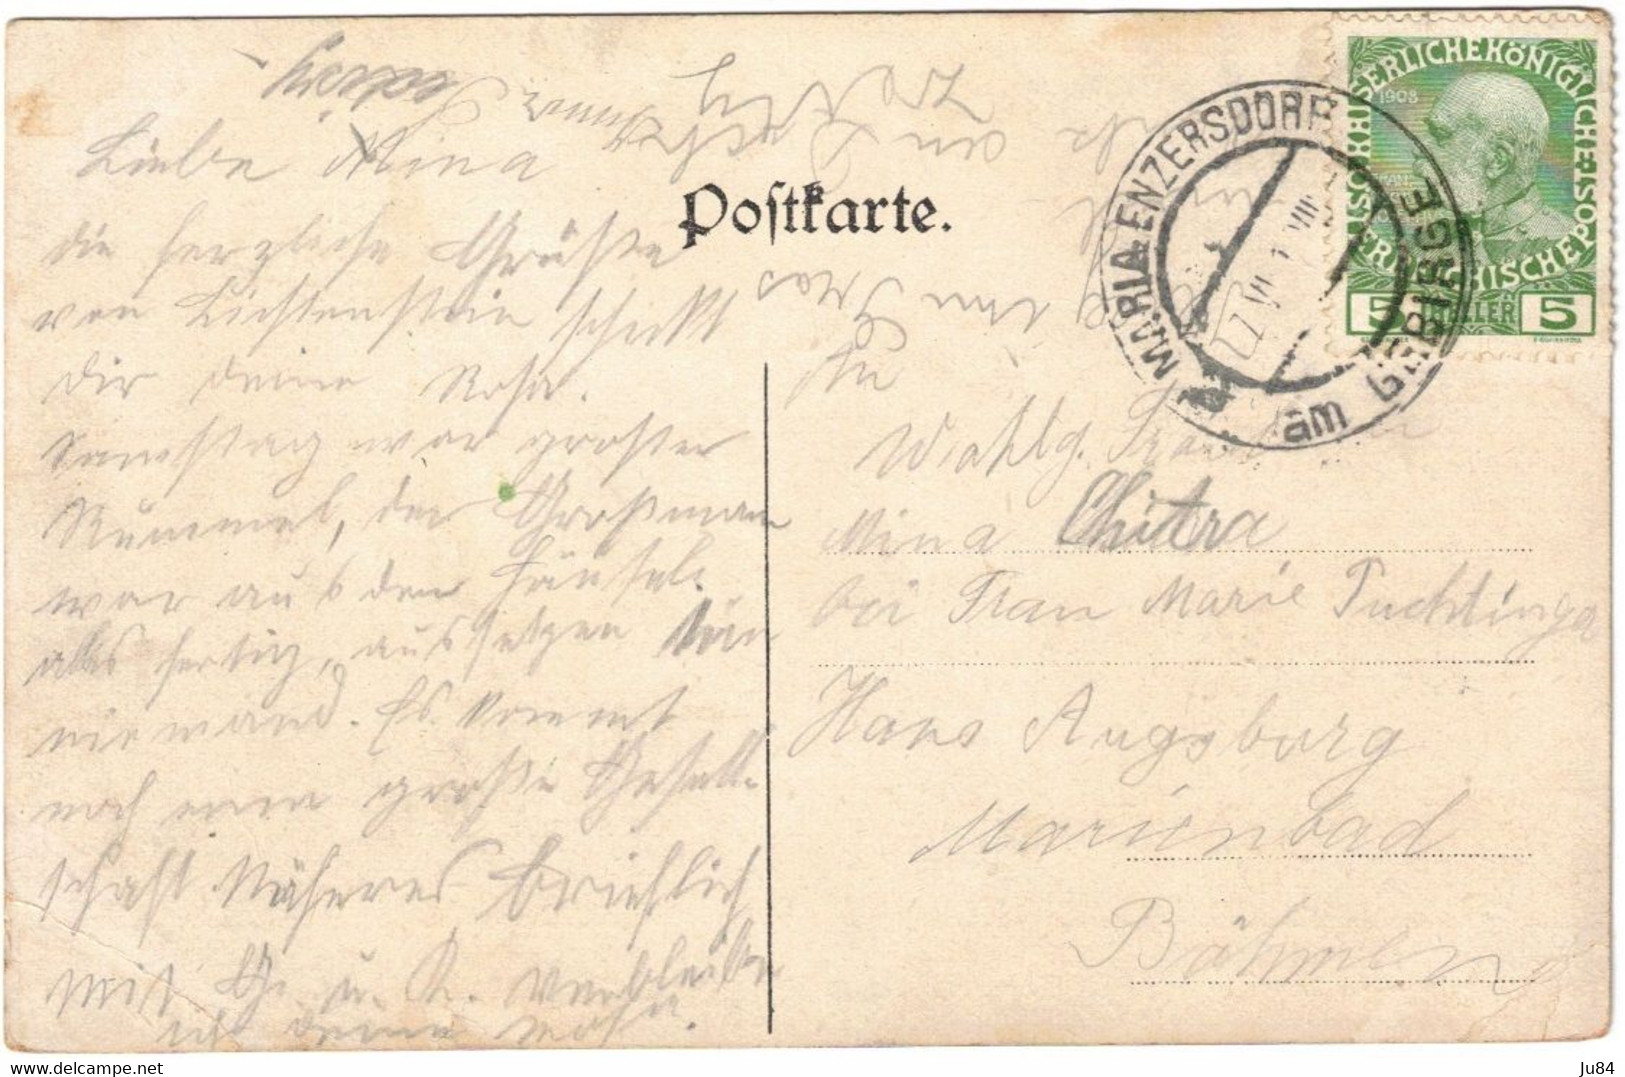 Liebe Mina
die herzliche Grüße
von Lichtenstein schickt
dir deine Rosa.
Samstag war großer
Rummel, der Großman
war aus dem Häusel.
alles fertig, aussetzen kan
niemand. Es kommt
noch eine große Gesell-
schaft Näheres brieflich
mit G. u. K. verbleibe
ich deine Rosa.
Postkarte.
MARIA ENZERSDORF
am GEBIRGE
KAISERLICHE KÖNIGLICHE ÖSTERREICHISCHE POST
1908
5 HELLER 5
An
Wohlg.
Mina Chitra
bei Frau Marie Puchtinger
Haus Augsburg
Marienbad
Böhmen
www.delcampe.net
Ju84